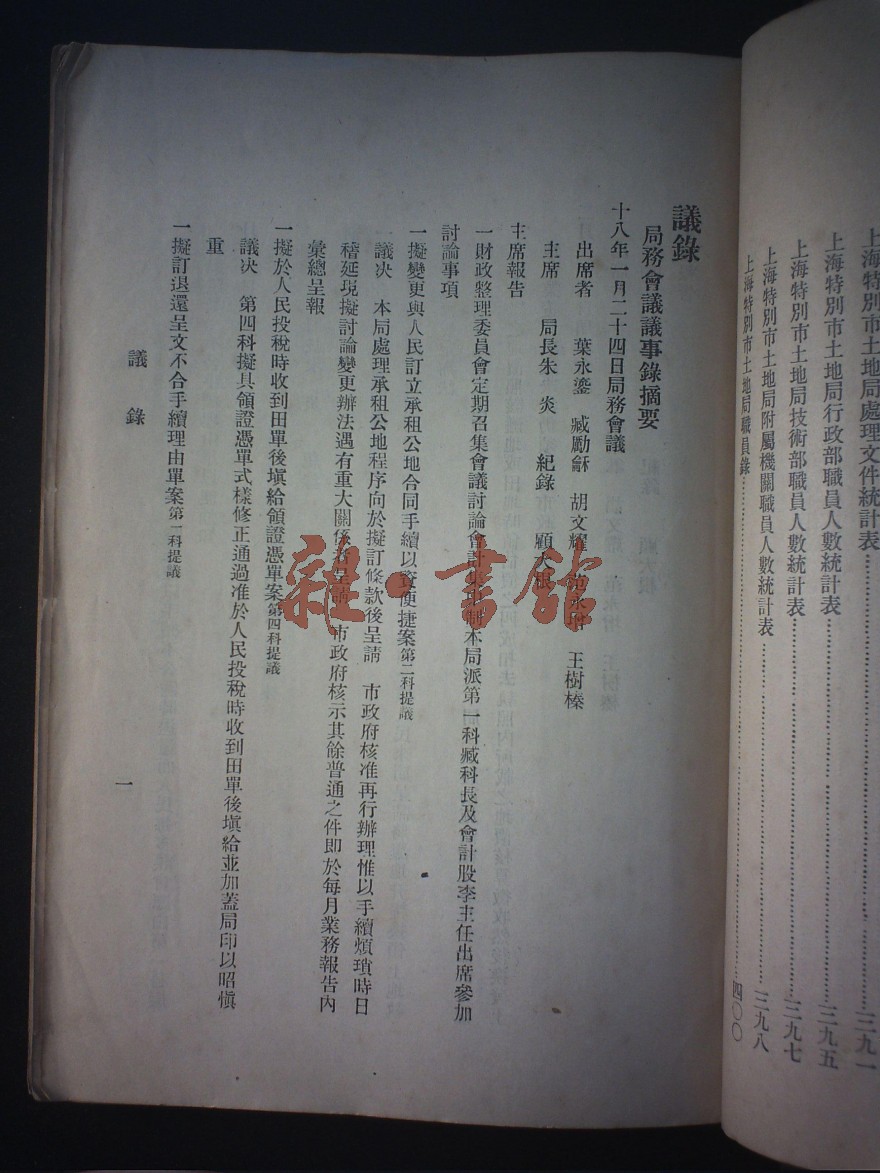 上海特別市土地局處理文件統計表……三九一
上海特別市土地局行政部職員人數統計表……三九五
上海特別市土地局技術部職員人數統計表……三九七
上海特別市土地局附屬機關職員人數統計表……三九八
上海特別市土地局職員錄……四〇〇
議錄
局務會議議事錄摘要
十八年一月二十四日局務會議
出席者 葉永鎏 臧勵龢 胡文耀 范永增 王樹榛
主席 局長朱 炎 紀錄 顧大根
主席報告
一財政整理委員會定期召集會議討論會計 制本局派第一科臧科長及會計股李主任出席參加
討論事項
一擬變更與人民訂立承租公地合同手續以資便捷案第二科提議
議決 本局處理承租公地程序向於擬訂條款後呈請 市政府核准再行辦理惟以手續煩瑣時日
稽延現擬討論變更辦法遇有重大關係者呈請 市政府核示其餘普通之件即於每月業務報告內
彙總呈報
一擬於人民投稅時收到田單後填給領證憑單案第四科提議
議決 第四科擬具領證憑單式樣修正通過准於人民投稅時收到田單後填給並加蓋局印以昭愼
重
一擬訂退還呈文不合手續理由單案第一科提議
議錄
一
雜·書館